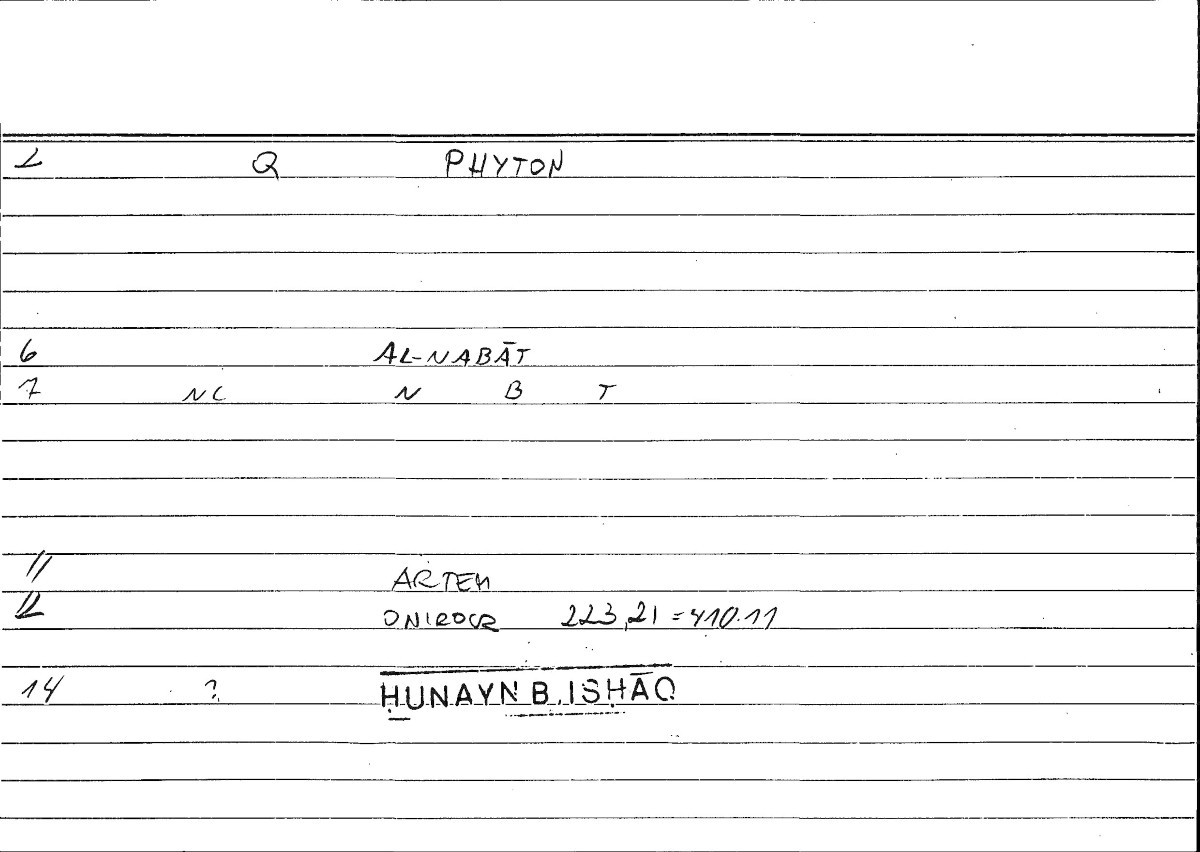 2 Q PHYTON
6 AL-NABĀT
7 NC N B T
11 ARTEM
12 ONIROCR 223,21 = 410.11
14 ? ḤUNAYN B. ISḤĀQ